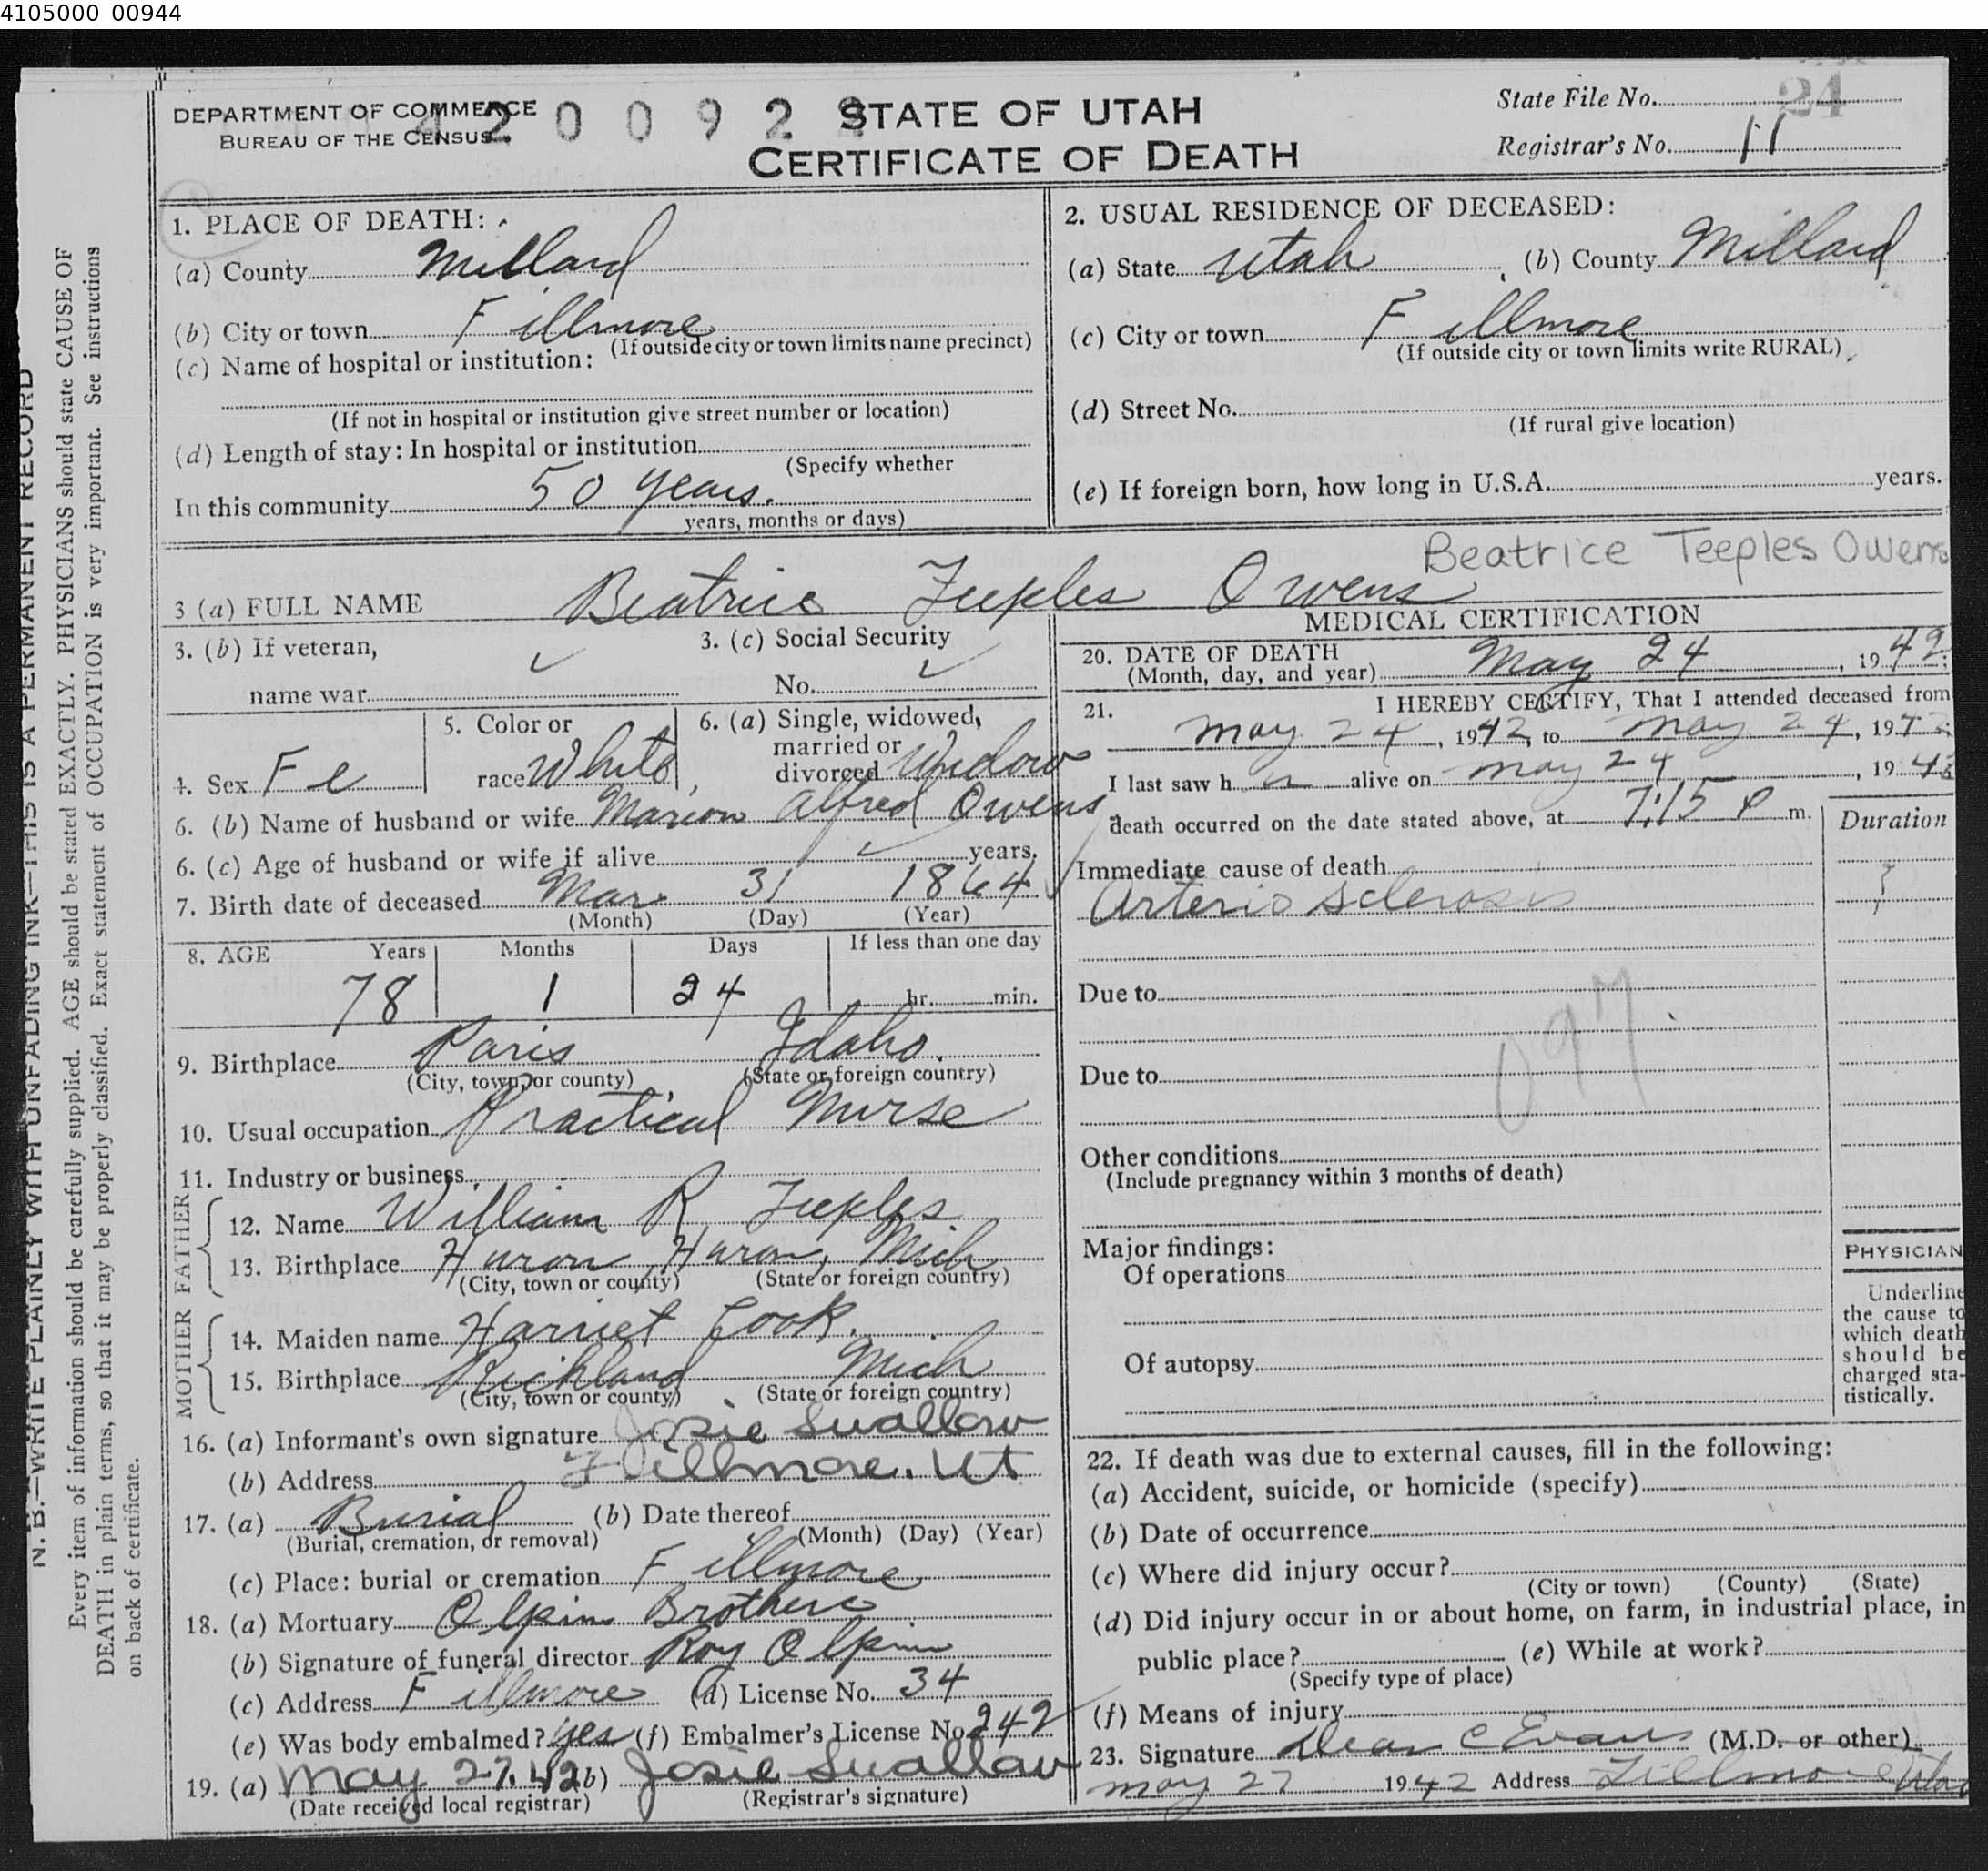 4105000_00944
DEPARTMENT OF COMMERCE
BUREAU OF THE CENSUS
4200922
STATE OF UTAH
CERTIFICATE OF DEATH
State File No. 24
Registrar's No. 11
1. PLACE OF DEATH:
(a) County Millard
(b) City or town Fillmore
(If outside city or town limits name precinct)
(c) Name of hospital or institution:
(If not in hospital or institution give street number or location)
(d) Length of stay: In hospital or institution
(Specify whether
In this community 50 years.
years, months or days)
2. USUAL RESIDENCE OF DECEASED:
(a) State Utah (b) County Millard
(c) City or town Fillmore
(If outside city or town limits write RURAL)
(d) Street No.
(If rural give location)
(e) If foreign born, how long in U.S.A. years.
Beatrice Teeples Owens
3 (a) FULL NAME Beatrice Teeples Owens
3. (b) If veteran,
name war
3. (c) Social Security
No.
4. Sex Fe
5. Color or
race White
6. (a) Single, widowed,
married or
divorced Widow
6. (b) Name of husband or wife Marion Alfred Owens
6. (c) Age of husband or wife if alive years.
7. Birth date of deceased Mar 31 1864
(Month) (Day) (Year)
8. AGE Years Months Days If less than one day
78 1 24 hr. min.
9. Birthplace Paris Idaho.
(City, town, or county) (State or foreign country)
10. Usual occupation Practical Nurse
11. Industry or business
FATHER
12. Name William R. Teeples
13. Birthplace Huron, Huron, Mich
(City, town or county) (State or foreign country)
MOTHER
14. Maiden name Harriet Cook.
15. Birthplace Richland Mich
(City, town or county) (State or foreign country)
16. (a) Informant's own signature Josie Swallow
(b) Address Fillmore. Ut
17. (a) Burial (b) Date thereof
(Burial, cremation, or removal) (Month) (Day) (Year)
(c) Place: burial or cremation Fillmore
18. (a) Mortuary Olpin Brothers
(b) Signature of funeral director Roy Olpin
(c) Address Fillmore (d) License No. 34
(e) Was body embalmed? yes (f) Embalmer's License No. 242
19. (a) May 27. 42 (b) Josie Swallow
(Date received local registrar) (Registrar's signature)
MEDICAL CERTIFICATION
20. DATE OF DEATH
(Month, day, and year) May 24, 1942;
21. I HEREBY CERTIFY, That I attended deceased from
May 24, 1942, to May 24, 1942;
I last saw h er alive on May 24, 1942
death occurred on the date stated above, at 7:15 P m.
Duration
Immediate cause of death
Arterio Sclerosis
?
Due to
097
Due to
Other conditions
(Include pregnancy within 3 months of death)
Major findings:
Of operations
Of autopsy
PHYSICIAN
Underline
the cause to
which death
should be
charged sta-
tistically.
22. If death was due to external causes, fill in the following:
(a) Accident, suicide, or homicide (specify)
(b) Date of occurrence
(c) Where did injury occur?
(City or town) (County) (State)
(d) Did injury occur in or about home, on farm, in industrial place, in
public place? (e) While at work?
(Specify type of place)
(f) Means of injury
23. Signature Dean C Evans (M.D. or other)
May 27 1942 Address Fillmore Utah
N. B.—WRITE PLAINLY WITH UNFADING INK—THIS IS A PERMANENT RECORD
Every item of information should be carefully supplied. AGE should be stated EXACTLY. PHYSICIANS should state CAUSE OF
DEATH in plain terms, so that it may be properly classified. Exact statement of OCCUPATION is very important. See instructions
on back of certificate.